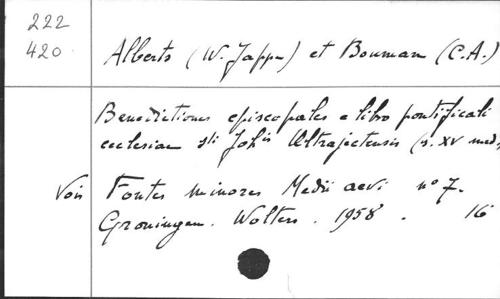 222
420
Alberts (W. Jappe) et Bouman (C.A.)
Benedictiones episcopales e libro pontificali
ecclesiae sti Johis Ultrajectensis (s. XV med.
Vois Fontes minores Medii aevi n° 7.
Groningen. Wolters. 1958. 16